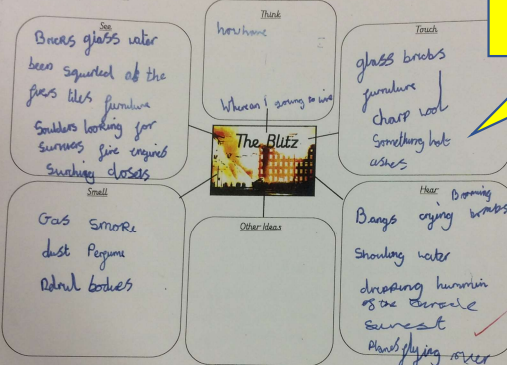 See
Bricks glass water
been squerted at the
fires tiles furniture
Soulders looking for
surviers fire engines
Think
Where am I going to live
Touch
glass bricks
furniture
charp wool
Something hot
ashes
The Blitz
Smell
Gas smoke
dust Perfume
bodies
Other Ideas
Hear
Booming
Bangs crying bombs
Shouting water
dropping hummin
of the
Planes flying over